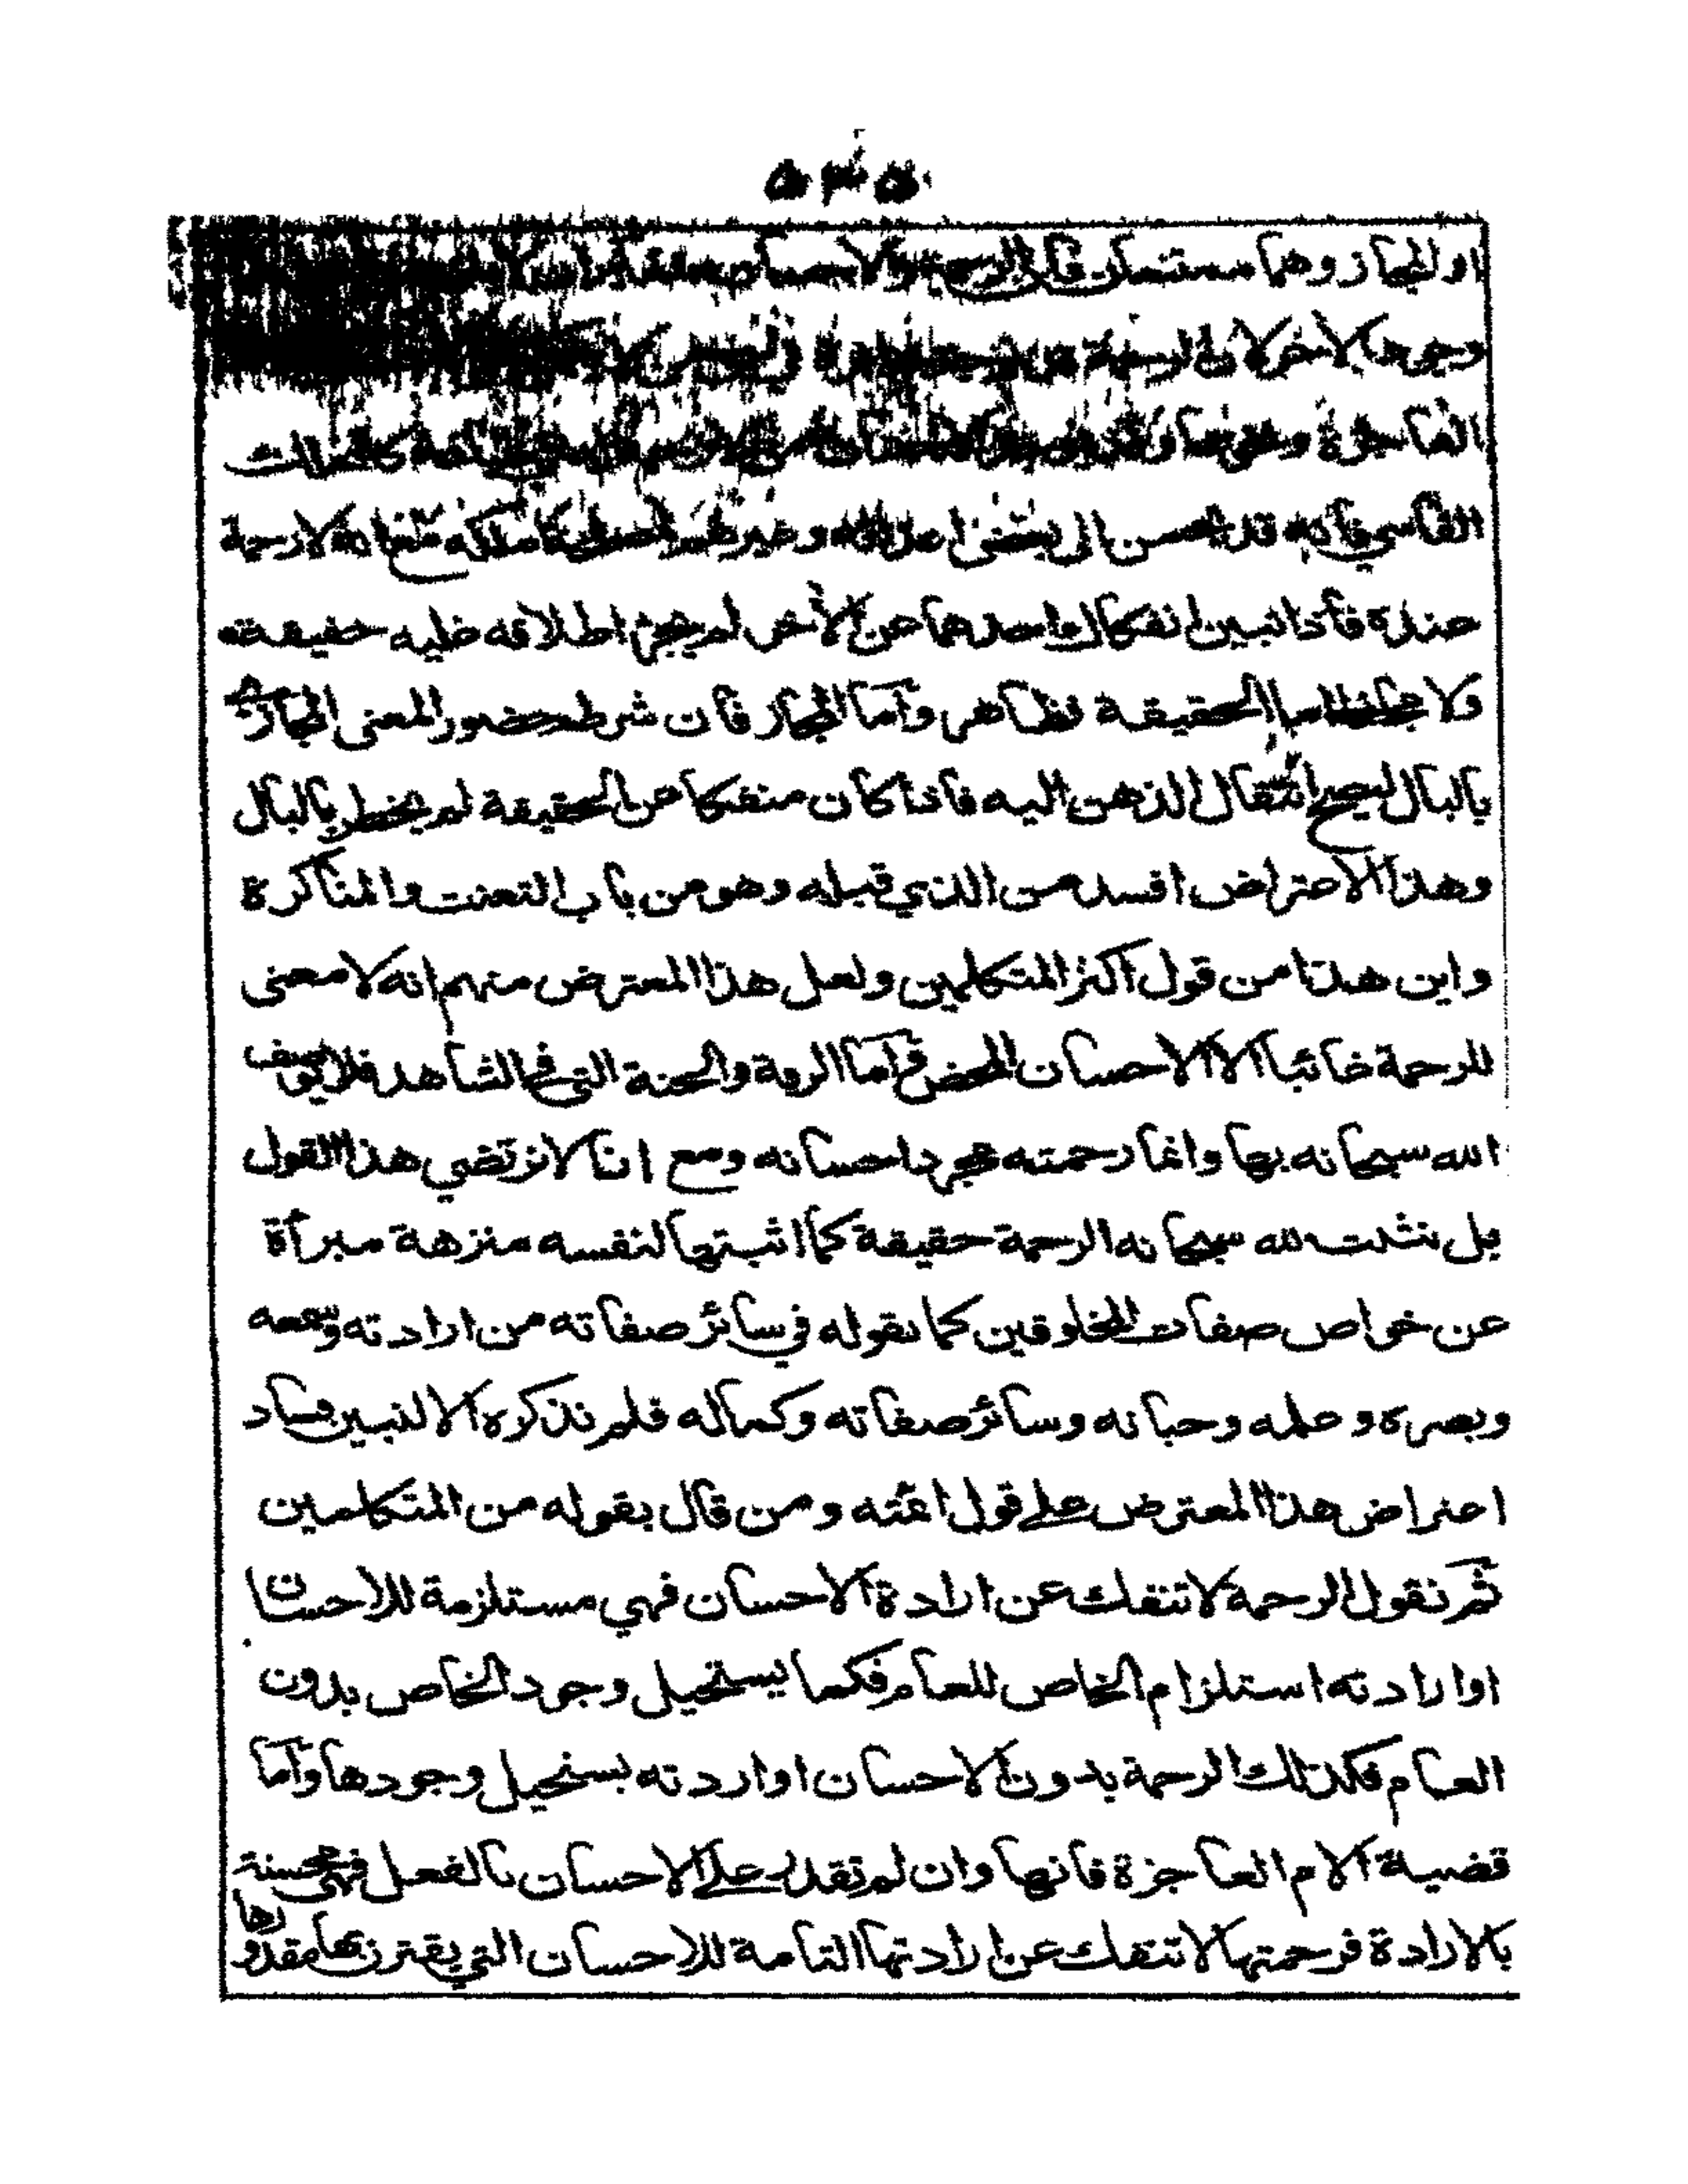 او المجاز وهما ممتنعان فان الرحمة والاحسان
وجود الاخر لان الرحمة
العاجزة ونحوها وقد
القاسي فانه قد يحسن الى بعض اعدائه وغيرهم لمصلحة مع انه لا رحمة
عنده فاذا تبين انفكاك احدهما عن الاخر لم يجز اطلاقه عليه حقيقة
ولا مجازا اما الحقيقة فظاهر وأما المجاز فان شرطه حضور المعنى المجازي
بالبال ليصح انتقال الذهن اليه فاذا كان منفكا عن الحقيقة لم يخطر بالبال
وهذا الاعتراض افسد من الذي قبله وهو من باب التعنت والمناكرة
واين هذا من قول أكثر المتكلمين ولعل هذا المعترض منهم انه لا معنى
للرحمة غائبا الا الاحسان المحض وأما الرقة والحنة التي في الشاهد فلا يوصف
الله سبحانه بها وانما رحمته مجرد احسانه ومع انا لا نرتضي هذا القول
بل نثبت لله سبحانه الرحمة حقيقة كما اثبتها لنفسه منزهة مبرأة
عن خواص صفات المخلوقين كما نقوله في سائر صفاته من ارادته وسمعه
وبصره وعلمه وحياته وسائر صفاته وكماله فلم نذكره الا لنبين فساد
اعتراض هذا المعترض على قول ائمته ومن قال بقوله من المتكلمين
ثم نقول الرحمة لا تنفك عن ارادة الاحسان فهي مستلزمة للاحسان
او ارادته استلزام الخاص للعام فكما يستحيل وجود الخاص بدون
العام فكذلك الرحمة بدون الاحسان او اردته يستحيل وجودها وأما
قضية الام العاجزة فانها وان لم تقدر على الاحسان بالفعل فهي محسنة
بالارادة فرحمتها لا تنفك عن ارادتها التامة للاحسان التي يقترن بها مقدورها